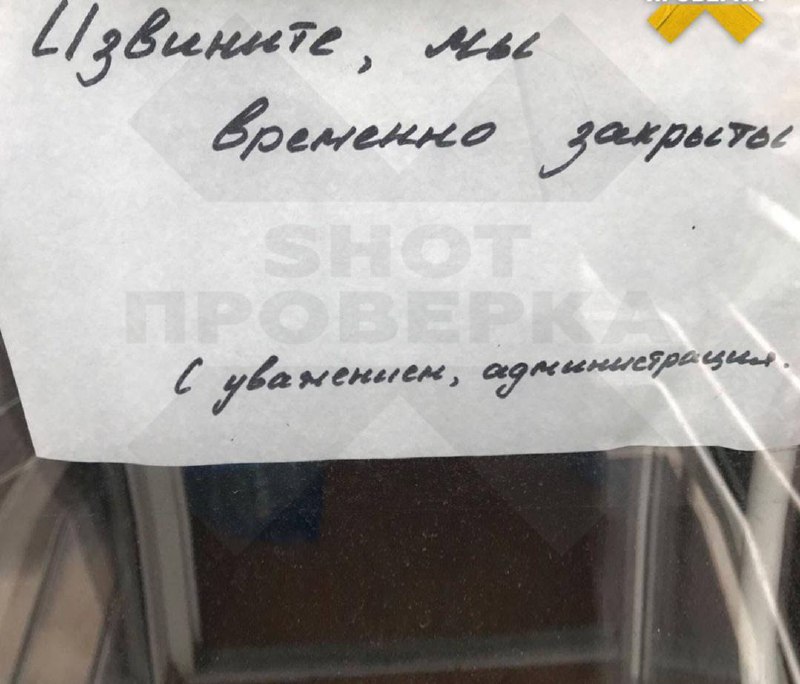 ПРОВЕРКА
Извините, мы
временно закрыты
SHOT
ПРОВЕРКА
С уважением, администрация.